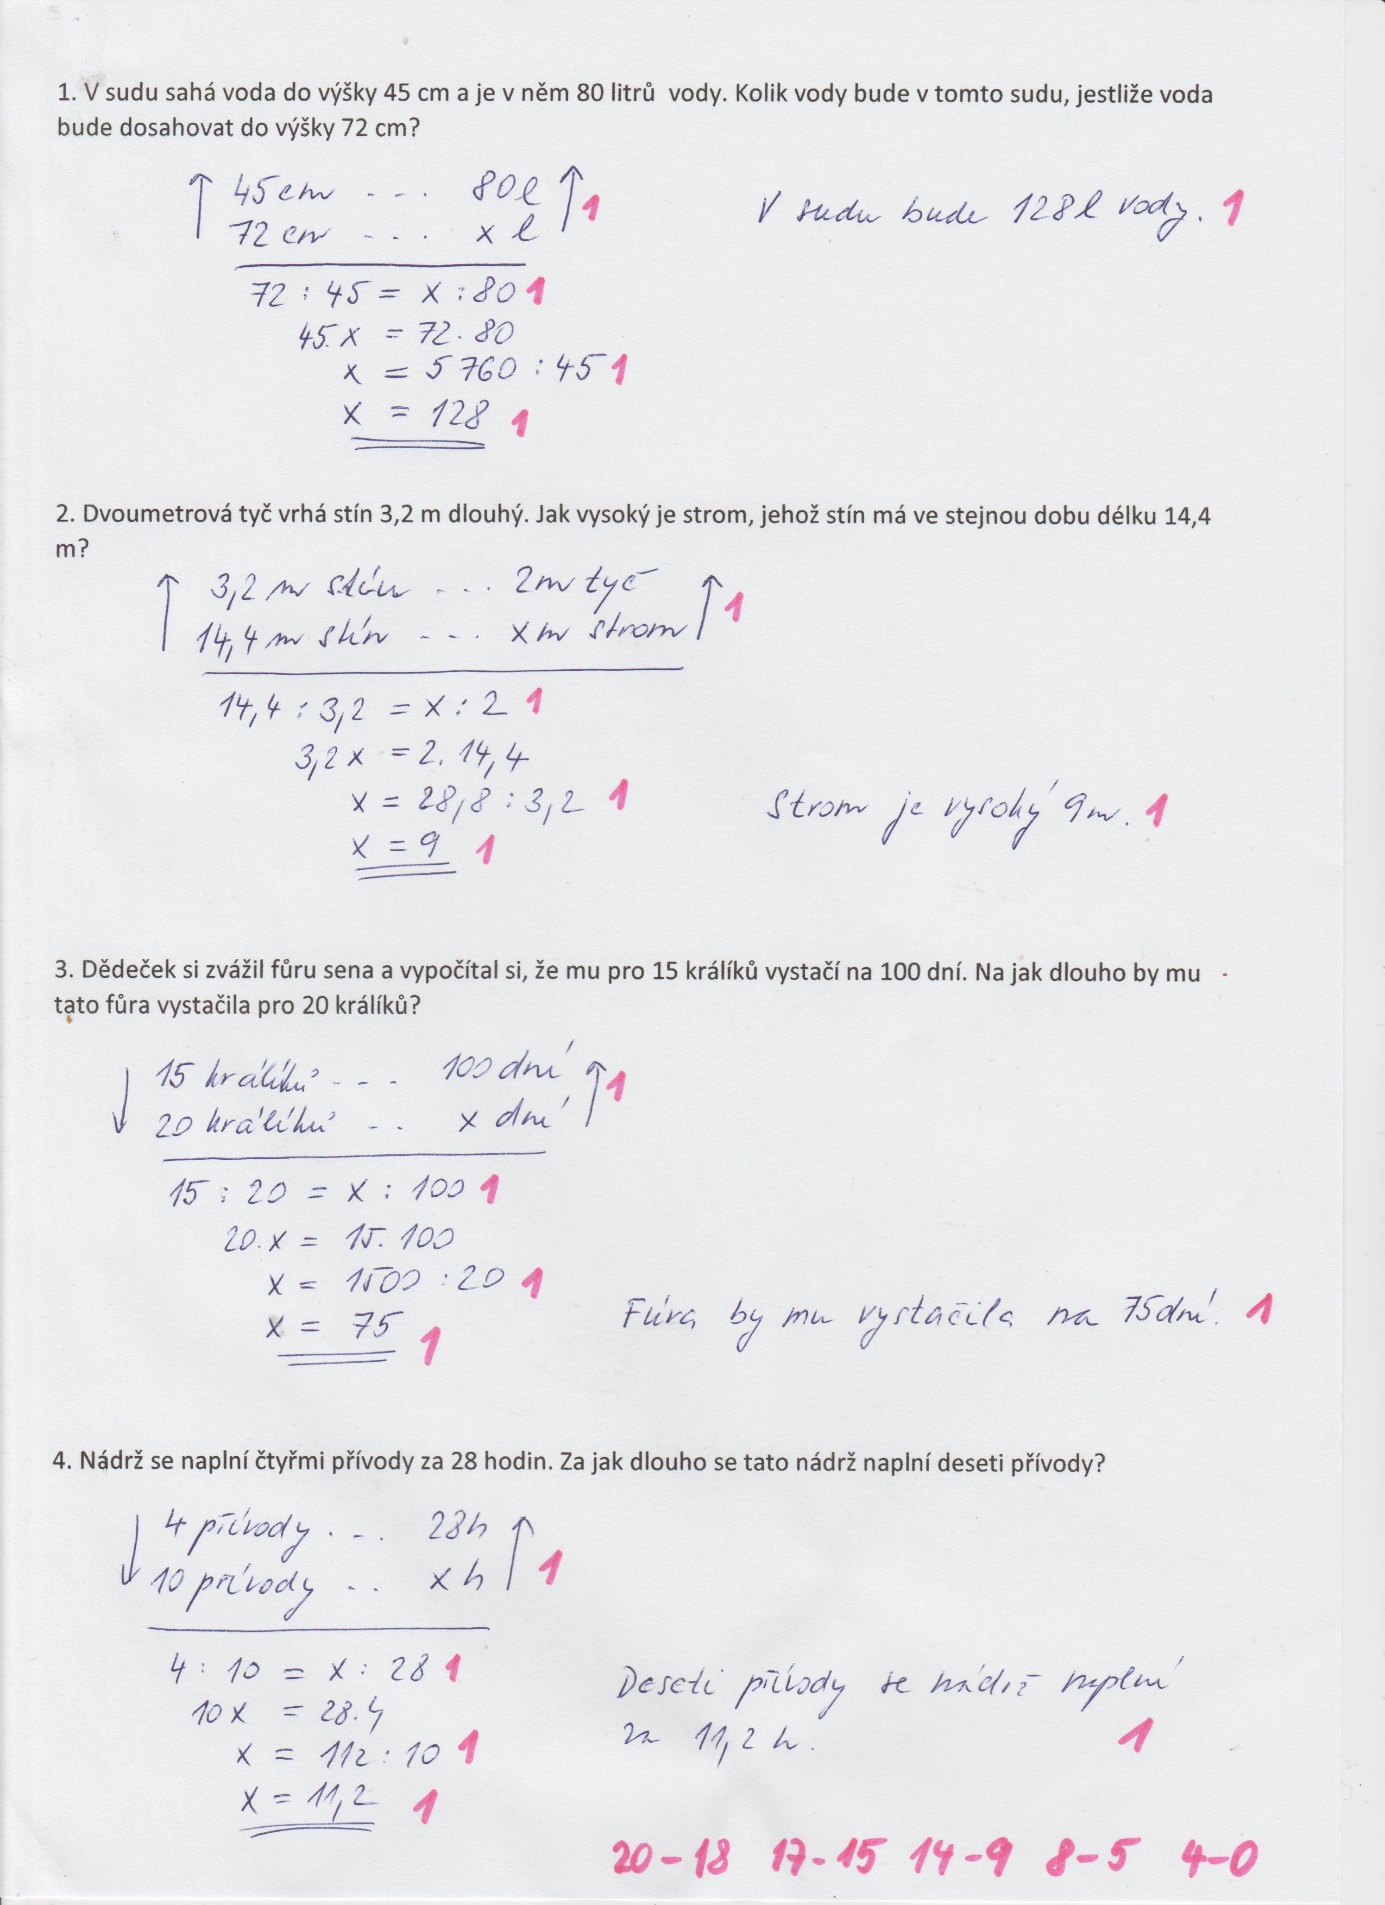 1. V sudu sahá voda do výšky 45 cm a je v něm 80 litrů vody. Kolik vody bude v tomto sudu, jestliže voda
bude dosahovat do výšky 72 cm?
↑ 45 cm - - . 80 l ↑ 1
72 cm - - . x l
V sudu bude 128 l vody. 1
72 : 45 = x : 80 1
45.x = 72.80
x = 5 760 : 45 1
x = 128 1
2. Dvoumetrová tyč vrhá stín 3,2 m dlouhý. Jak vysoký je strom, jehož stín má ve stejnou dobu délku 14,4
m?
↑ 3,2 m stín - . . 2 m tyč ↑ 1
14,4 m stín - - . x m strom
14,4 : 3,2 = x : 2 1
3,2 x = 2. 14,4
x = 28,8 : 3,2 1
Strom je vysoký 9 m. 1
x = 9 1
3. Dědeček si zvážil fůru sena a vypočítal si, že mu pro 15 králíků vystačí na 100 dní. Na jak dlouho by mu
tato fůra vystačila pro 20 králíků?
↓ 15 králíků - - - 100 dní ↑ 1
20 králíků - . x dní
15 : 20 = x : 100 1
20.x = 15. 100
x = 1500 : 20 1
Fúra by mu vystačila na 75 dní. 1
x = 75 1
4. Nádrž se naplní čtyřmi přívody za 28 hodin. Za jak dlouho se tato nádrž naplní deseti přívody?
↓ 4 přívody . - . 28 h ↑ 1
10 přívody - . x h
4 : 10 = x : 28 1
10 x = 28.4
x = 112 : 10 1
x = 11,2 1
Deseti přívody se nádrž naplní
za 11,2 h. 1
20-18 17-15 14-9 8-5 4-0